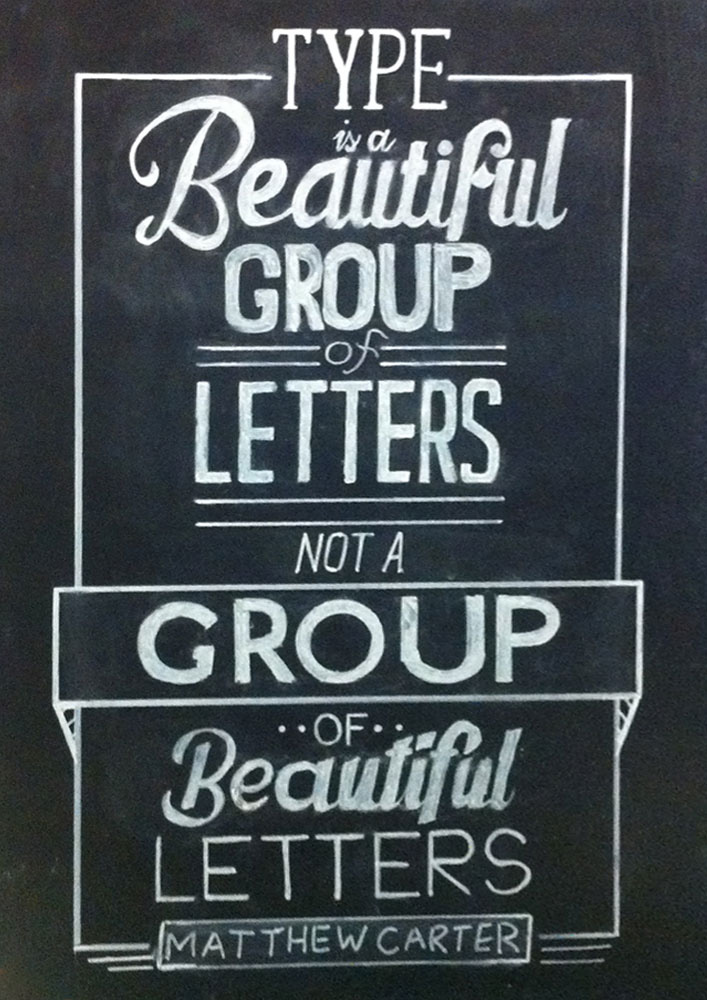 TYPE
is a
Beautiful
GROUP
of
LETTERS
NOT A
GROUP
··OF··
Beautiful
LETTERS
MATTHEW CARTER